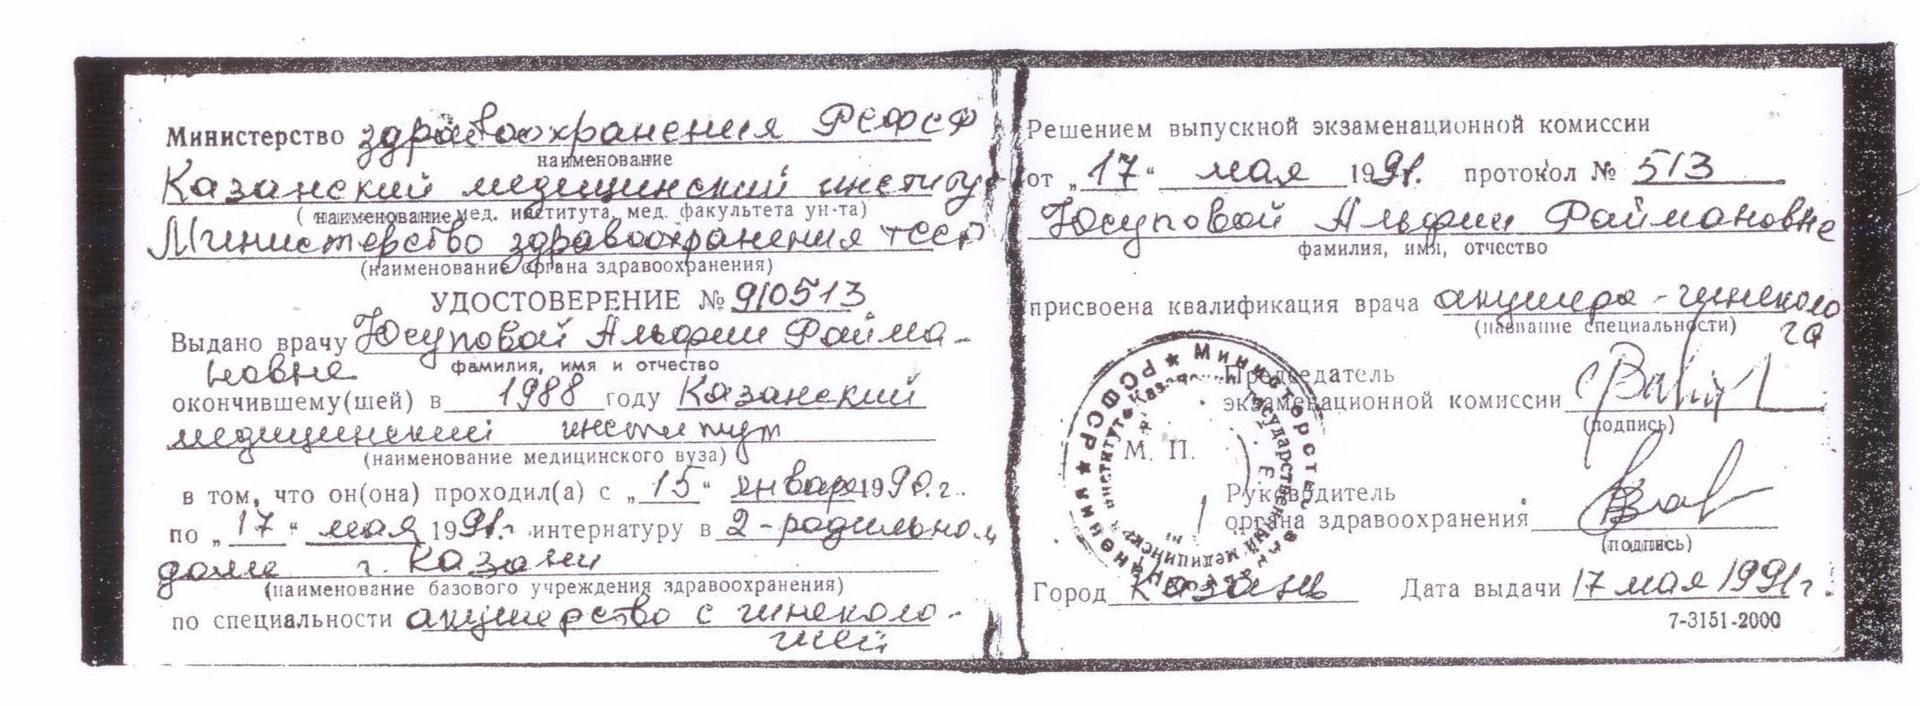 Министерство здравоохранения РСФСР
наименование
Казанский медицинский институт
(наименование мед. института, мед. факультета ун-та)
Министерство здравоохранения ТССР
(наименование органа здравоохранения)
УДОСТОВЕРЕНИЕ № 910513
Выдано врачу Юсуповой Альфии Файма-
новне
фамилия, имя и отчество
окончившему(шей) в 1988 году Казанский
медицинский институт
(наименование медицинского вуза)
в том, что он(она) проходил(а) с „15“ января 1990.г.
по „17“ мая 1991.г. интернатуру в 2-родильном
доме г. Казани
(наименование базового учреждения здравоохранения)
по специальности акушерство с гинеколо-
гией
Решением выпускной экзаменационной комиссии
от „17“ мая 1991г. протокол № 513
Юсуповой Альфии Файмановне
фамилия, имя, отчество
присвоена квалификация врача акушера-гинеколо
га
(название специальности)
Председатель
экзаменационной комиссии
(подпись)
М. П.
Руководитель
органа здравоохранения
(подпись)
Город Казань Дата выдачи 17 мая 1991г.
7-3151-2000